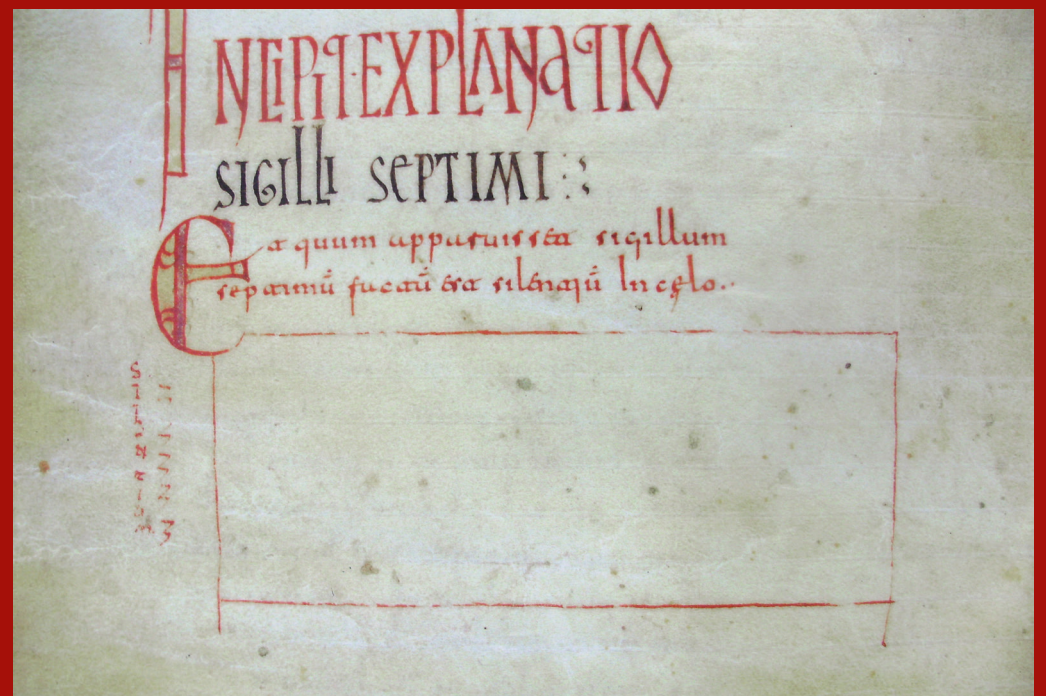 INCIPIT·EXPLANATIO
SIGILLI SEPTIMI
Et quum apparuisset sigillum
septimū factū est silentiū In cęlo..